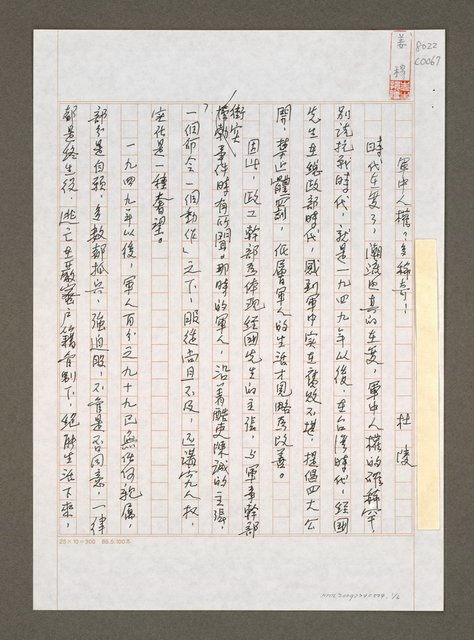 姜穆
8022
C0067
軍中人權，多稀奇！
杜陵
時代在變了，潮流也真的在變，軍中人權的確稱罕。
別說抗戰時代，就是一九四九年以後，在台灣時代，經國
先生在總政部時代，感到軍中實在腐敗不堪，提倡四大公
開，禁止體罰，低層軍人的生活才見略為改善。
因此，政工幹部為体現經國先生的主張，与軍事幹部
衝突事件時有所聞。那時的軍人，沿着酷吏陳誠的主張，
「一個命令一個動作」之下，服從尚且不及，遑論人權，
實在是一種奢望。
一九四九年以後，軍人百分之九十九已無任何親屬，
部分是自願，多數都抓兵、強迫服，不管是否同意，一律
都是終生役，逃亡在嚴密戶籍管制下，絕無生活下來，
25×10=300 86.5.100本
NMTL20092270529, 1/2